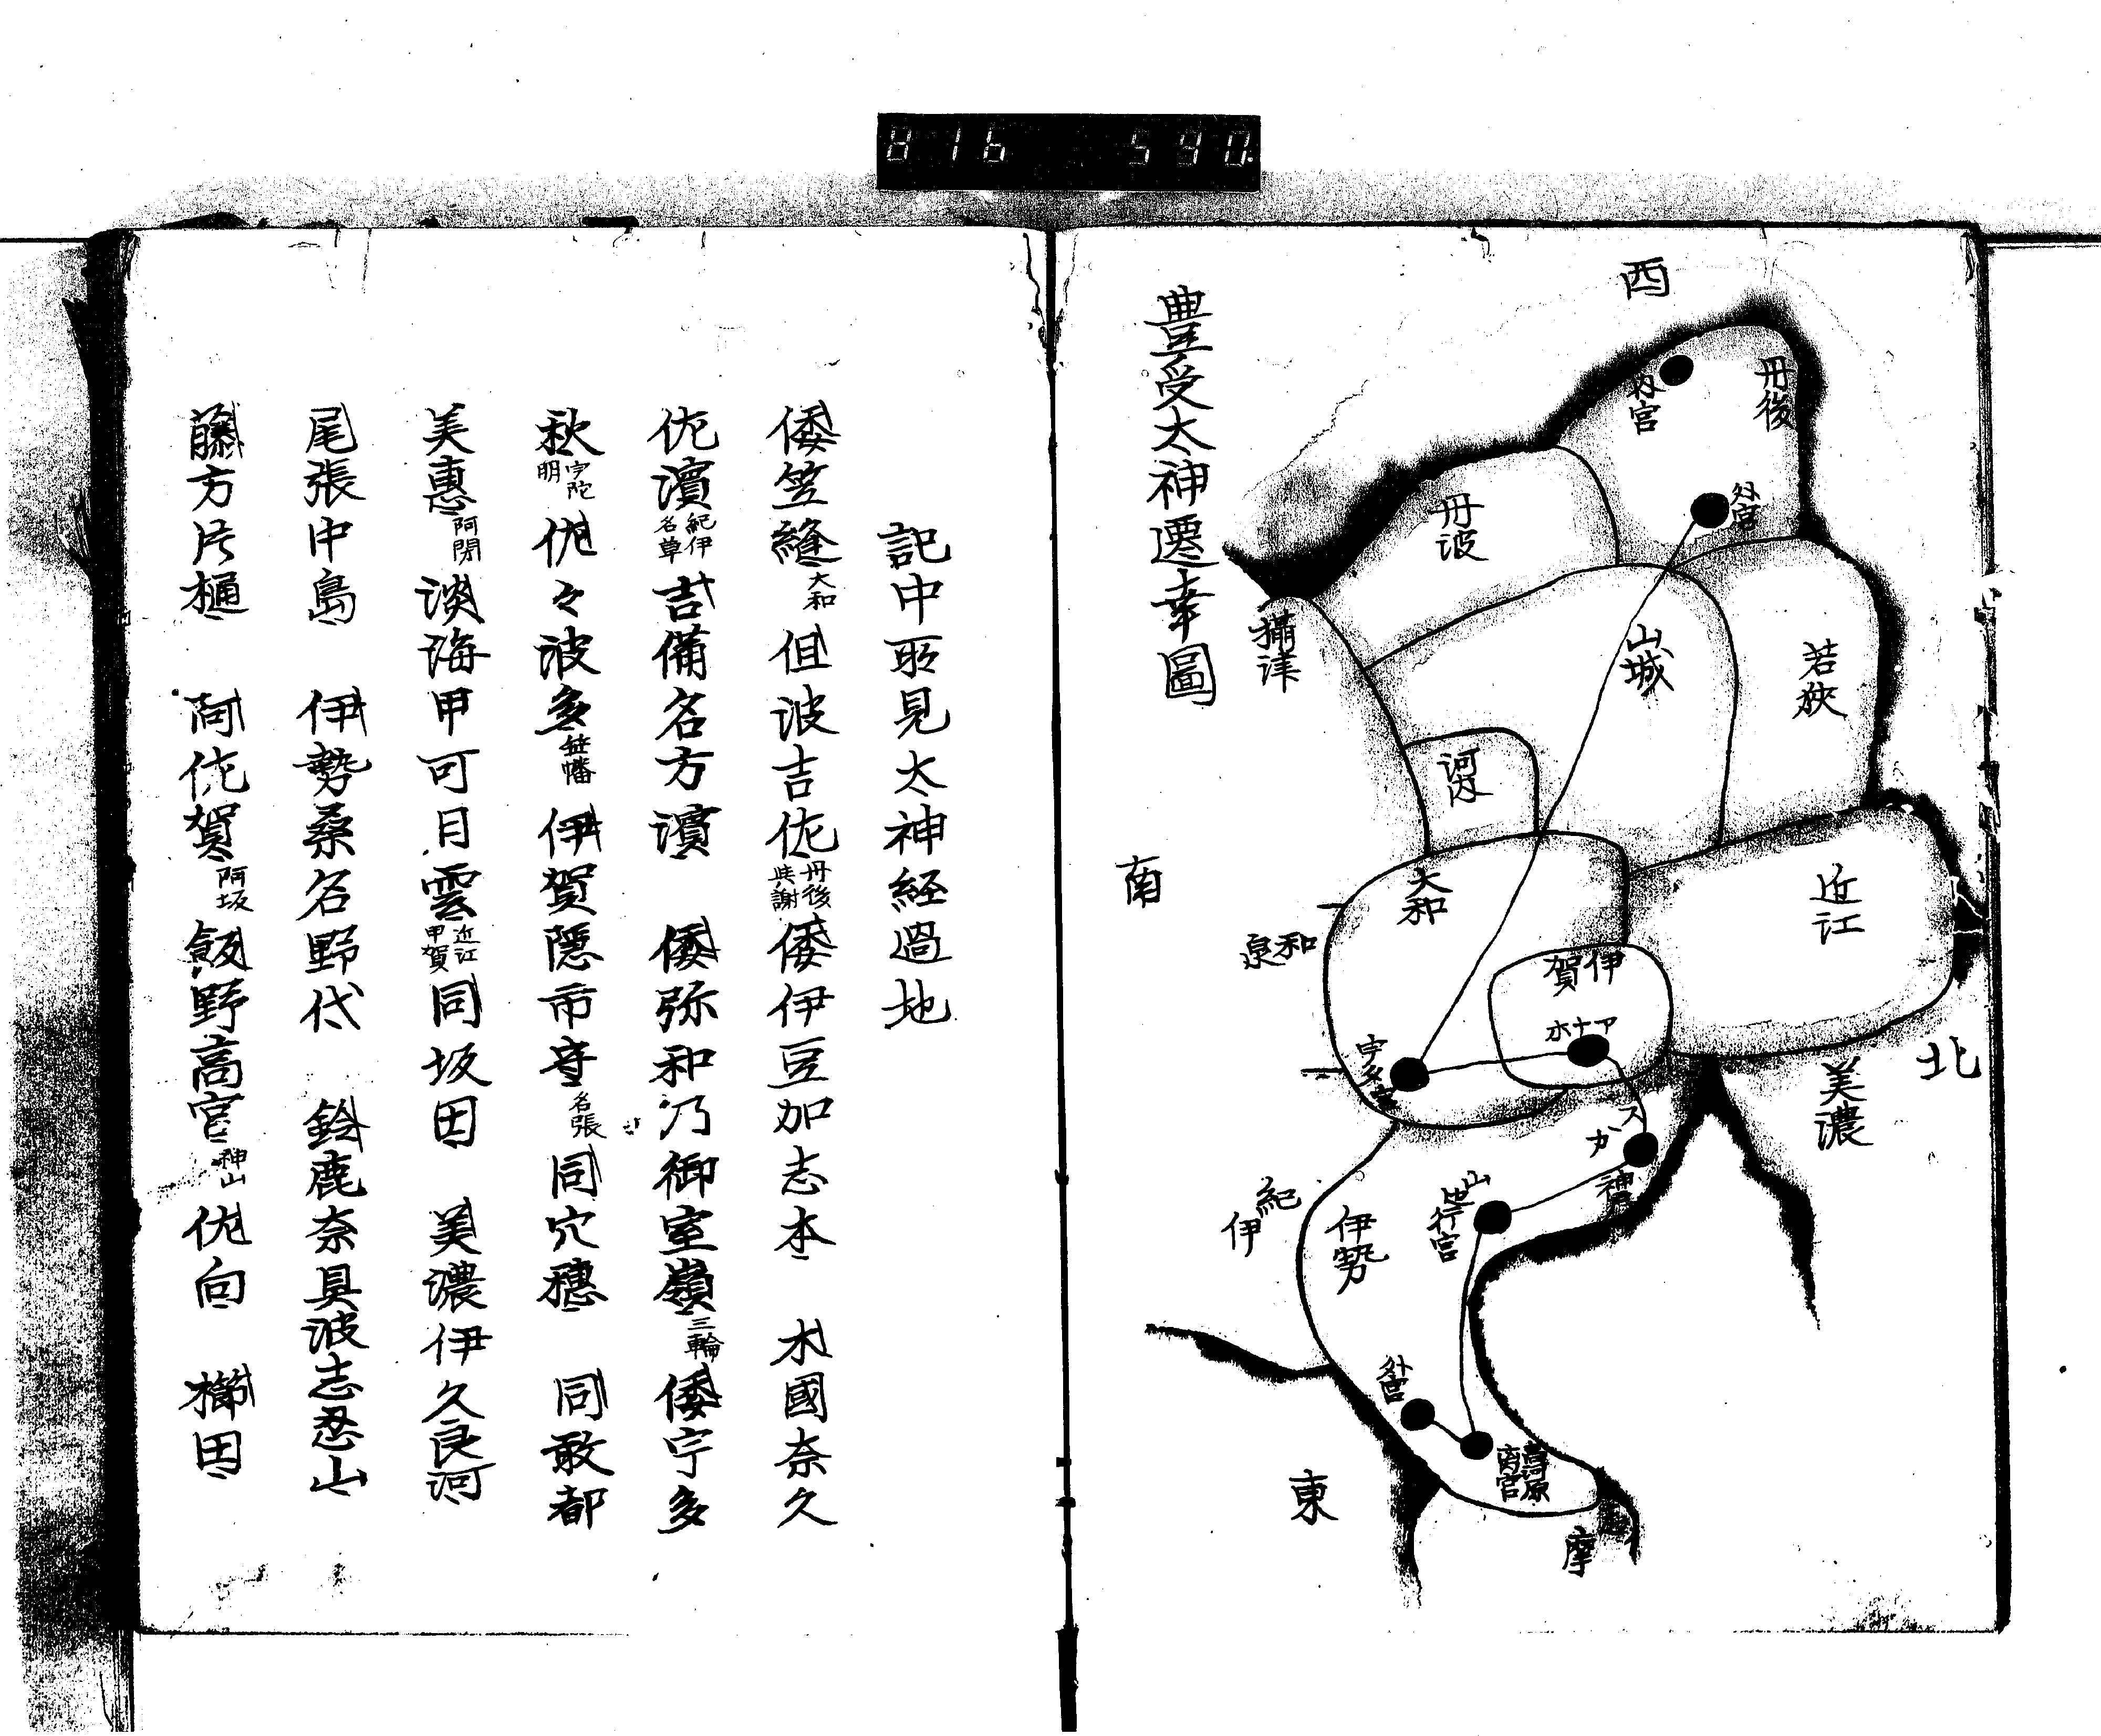 816 590.
西
丹後
内宮
外宮
丹波
豊受太神遷幸圖
攝津
山城
若狹
河内
南
大和
近江
和泉
伊賀
アナホ
宇多宮
北
美濃
スカ
神戸
山辺行宮
紀伊
伊勢
外宮
高河原
离宮
東
摩
記中所見太神経過地
倭笠縫大和 但波吉佐丹後与謝 倭伊豆加志本 木國奈久
佐濱紀伊名草 吉備名方濱 倭弥和乃御室嶺三輪 倭宇多
秋宇陀明 佐々波多篠幡 伊賀隠市守名張 同穴穂 同敢都
美惠阿閇 淡海甲可日雲近江甲賀 同坂田 美濃伊久良河
尾張中島 伊勢桑名野代 鈴鹿奈具波志忍山
藤方片樋 阿佐賀阿坂 飯野高宮神山 佐向 櫛田